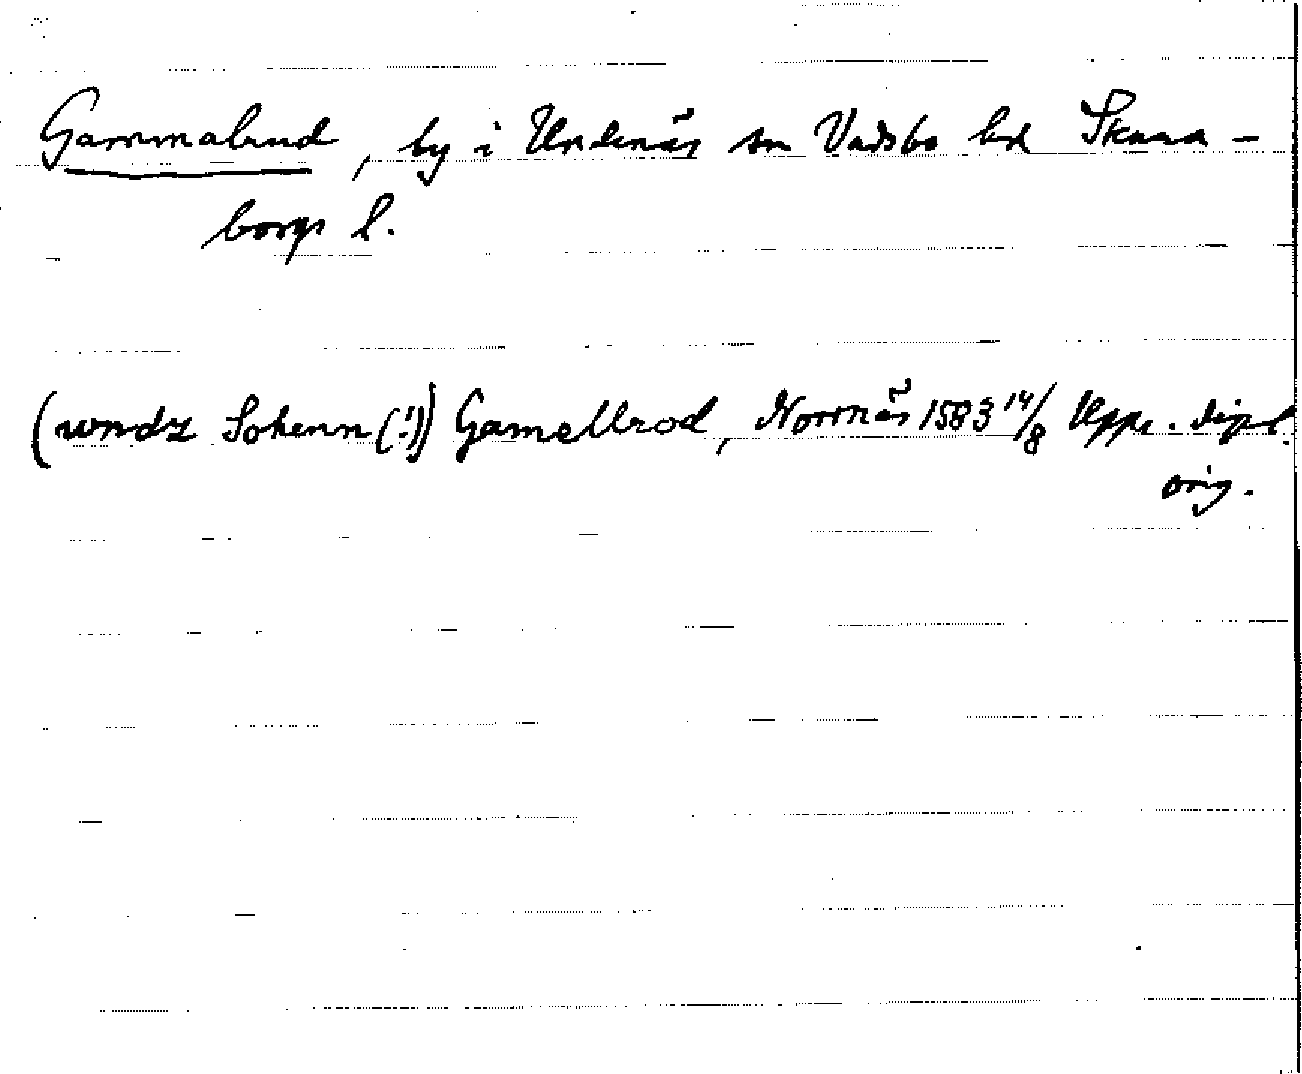 Gammalrud, by i Undenäs sn Vadsbo hd Skara-
borgs l.
(wndz Sokenn(!)) Gamellrod, Norrnäs 1583 14/8 Upps. dipl.
orig.